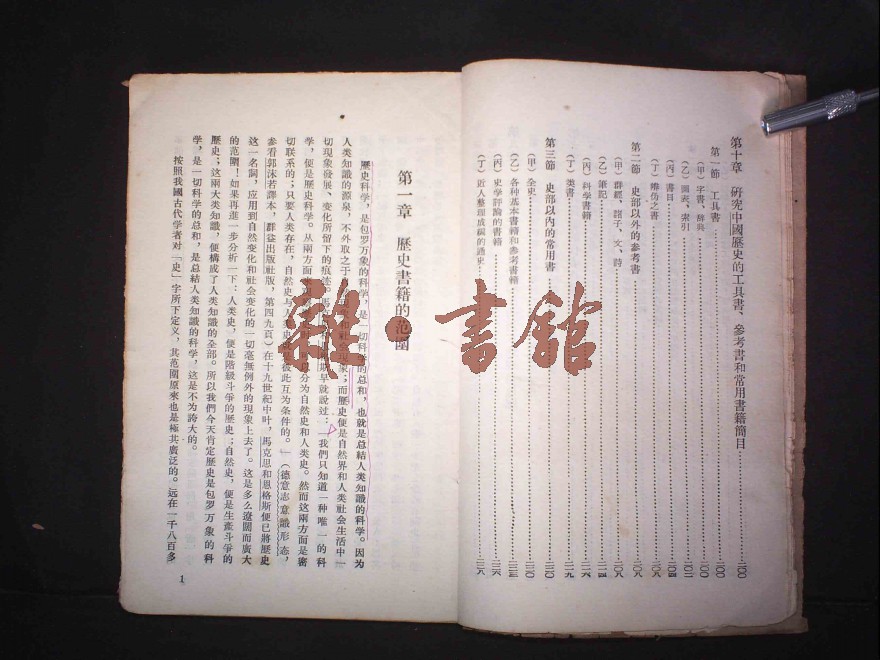 第十章 研究中國歷史的工具書、參考書和常用書籍簡目……二〇〇
第一節 工具書……二〇〇
(甲)字書、辭典……二〇〇
(乙)圖表、索引
(丙)書目
(丁)辨偽之書……二〇八
第二節 史部以外的參考書……二〇八
(甲)群經、諸子、文、詩……二〇八
(乙)筆記……二一四
(丙)科學書籍……二一六
(丁)类書……二一九
第三節 史部以內的常用書……二二〇
(甲)全史……二二〇
(乙)各种基本書籍和參考書籍
(丙)史学評論的書籍……二二六
(丁)近人整理成編的通史……二二八
雜·書館
第一章 歷史書籍的范圍
歷史科学，是包罗万象的科学，是一切科学的总和，也就是总結人类知識的科学。因为
人类知識的源泉，不外取之于現象和社会現象；而歷史便是自然界和人类社会生活中一
切現象發展、变化所留下的痕迹。早就說过：「我們只知道一种唯一的科
学，便是歷史科学。从兩方面可以分为自然史和人类史。然而这兩方面是密
切联系的；只要人类存在，自然史与人类史彼此互为条件的。」（德意志意識形态，
參看郭沫若譯本，群益出版社版，第四九頁）在十九世紀中叶，馬克思和恩格斯便已將歷史
这一名詞，应用到自然变化和社会变化的一切毫無例外的現象上去了。这是多么遼闊而廣大
的范圍！如果再進一步分析一下：人类史，便是階級斗爭的歷史；自然史，便是生產斗爭的
歷史；这兩大类知識，便構成了人类知識的全部。所以我們今天肯定歷史是包罗万象的科
学，是一切科学的总和，是总結人类知識的科学，这是不为誇大的。
按照我國古代学者对「史」字所下定义，其范圍原來也是極其廣泛的。远在一千八百多
1